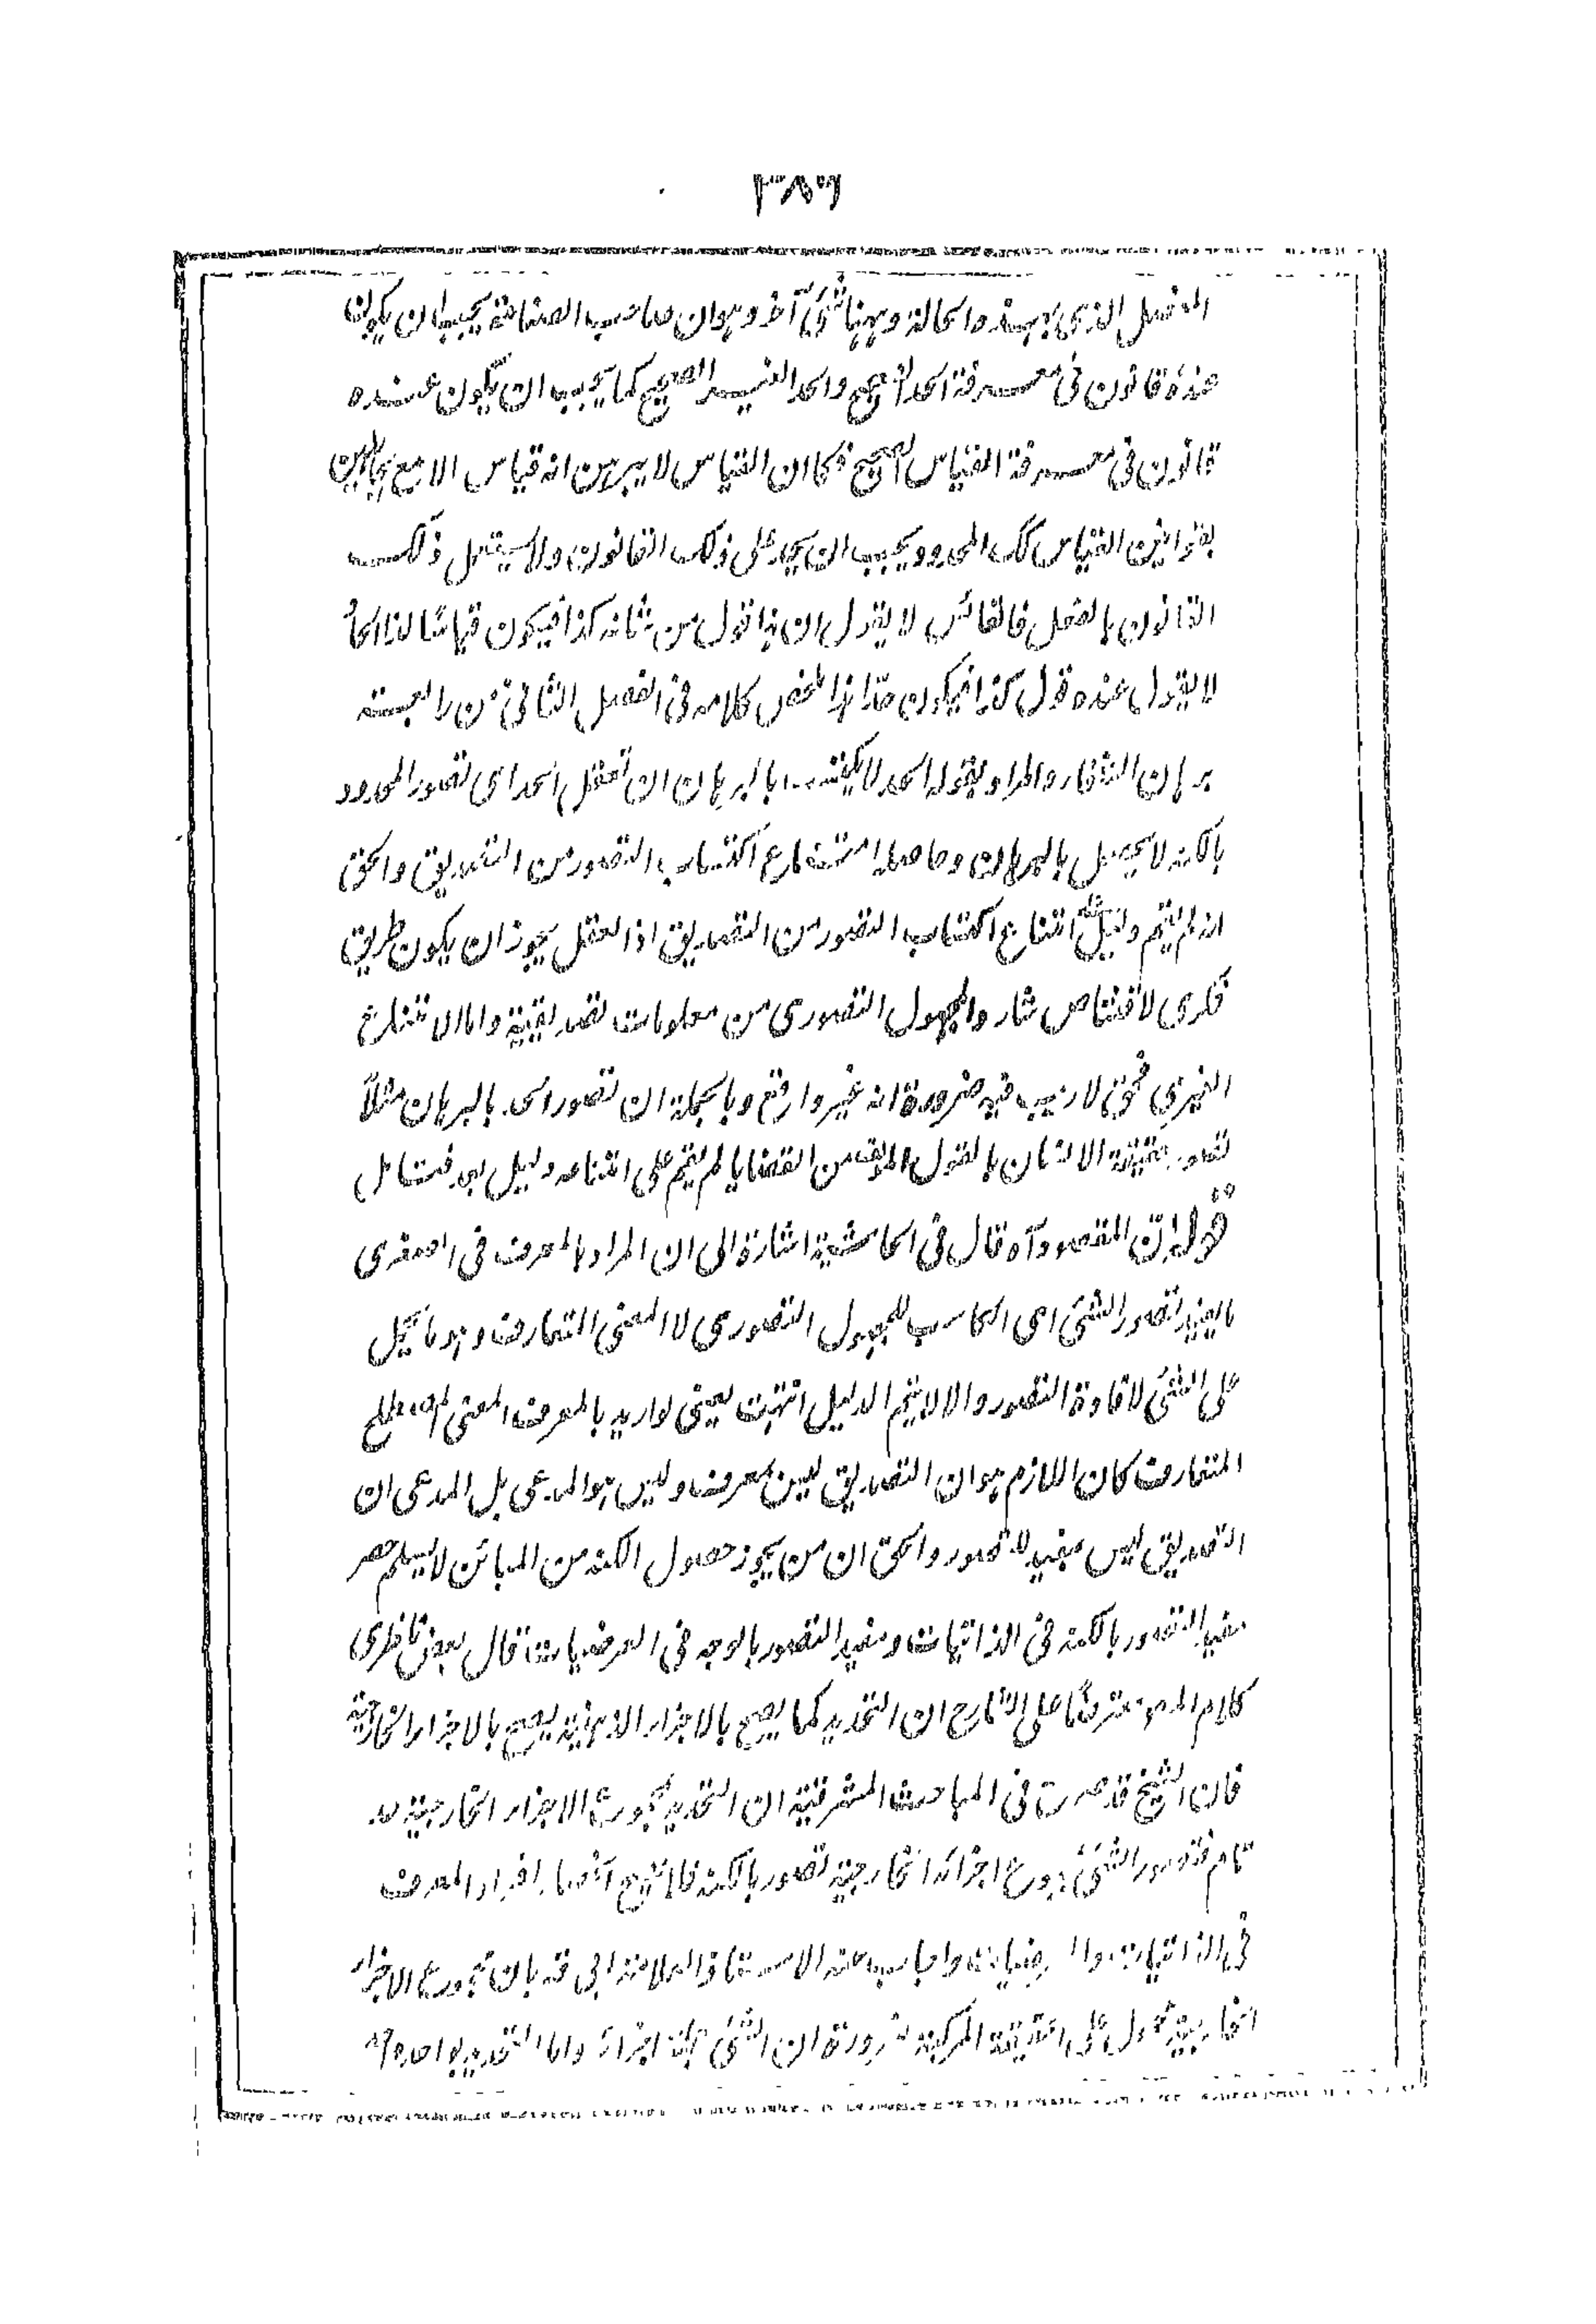 ٣٨٦
الفصل الذي بهذه الحالة وههنا شئ آخر وهو ان صاحب الصناعة يجب ان يكون
عنده قانون فى معرفة الحد الصحيح والحد الغير الصحيح كما يجب ان تكون عنده
قانون فى معرفة القياس الصحيح فكما ان القياس لا يبرهن انه قياس الا مع
بقوانين القياس كك المحدود يجب ان يحد على ذلك القانون ولا يستعمل ذلك
القانون بالفعل فالقائس لا يقول ان هذا قول من شانه كذا فيكون قياسًا لذا الحاد
لا يقول عنده قول كذا فيكون حدا هذا ملخص كلامه فى الفصل الثانى من رابعة
برهان الشفاء والمراد بقوله الحد لا يكتسب بالبرهان ان تعقل الحد اى تصور المحدود
بالكنه لا يحصل بالبرهان وحاصله امتناع اكتساب التصور من التصديق والحق
انه لم يقم دليل على امتناع اكتساب التصور من التصديق اذ العقل يجوز ان يكون طريق
فكرى لاقتناص شارد المجهول التصورى من معلومات تصديقية واما الامتناع
الغيرى فحق لا ريب فيه ضرورة انه غير واقع وبالجملة ان تصور الحد بالبرهان مثلًا
تصور حقيقة الانسان بالقول المؤلف من القضايا لم يقم على امتناعه دليل بعد فتامل
قوله ان المقصود آه قال فى الحاشية اشارة الى ان المراد بالمعرف فى الصغرى
ما يفيد تصور الشئ اى الكاسب للمجهول التصورى لا المعنى المتعارف وهو ما يحمل
على الشئ لافادة التصور والا لا يتم الدليل انتهت يعنى لو اريد بالمعرف المعنى المصطلح
المتعارف كان اللازم هو ان التصديق ليس بمعرف وليس هو المدعى بل المدعى ان
التصديق ليس مفيد للتصور والحق ان من يجوز حصول الكنه من المبائن لا يسلم حصر
مفيد التصور بالكنه فى الذاتيات ومفيد التصور بالوجه فى العرضيات قال بعض ناظرى
كلام المصنف معترضًا على الشارح ان التحديد كما يصح بالاجزاء الذهنية يصح بالاجزاء الخارجية
فان الشيخ قد صرح فى المباحث المشرقية ان التحديد بمجموع الاجزاء الخارجية حد
تام فتصور الشئ بمجموع اجزائه الخارجية تصور بالكنه فلم ينحصر افراد المعرف
فى الذاتيات والعرضيات واجاب عنه الاستاذ العلامة ابى قده بان مجموع الاجزاء
الخارجية محمول على الحقيقة المركبة ضرورة ان الشئ اجزائه واما التحديد بواحد